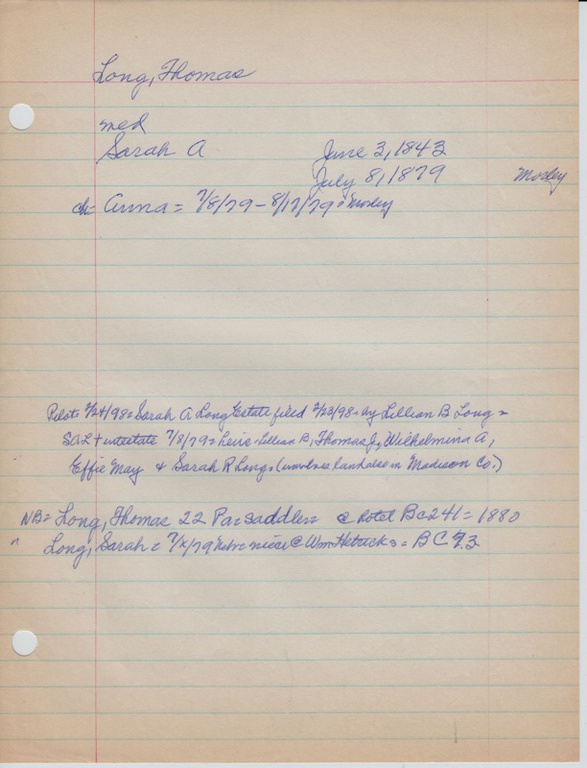 Long, Thomas
med
Sarah A June 3, 1843
July 8, 1879 Mosley
ch= Anna = 7/8/79 - 8/17/79 = Mosley
Pilot= 2/24/98= Sarah A Long Estate filed 2/23/98= by Lillian B Long =
SAL + intestate 7/8/79= heirs= Lillian B, Thomas J, Wilhelmina A,
Effie May & Sarah R Long= (involves land also in Madison Co.)
NB= Long, Thomas 22 Pa= saddler= @ hotel BC241= 1880
" Long, Sarah = 7/ /79 Nebr= niece @ Wm = BC 93